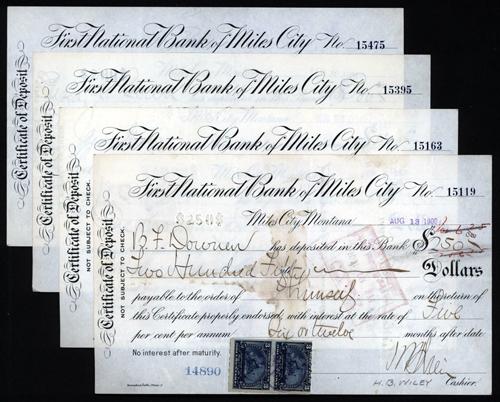 First National Bank of Miles City No. 15475
Certificate of Deposit
First National Bank of Miles City No. 15395
Certificate of Deposit
First National Bank of Miles City No. 15163
Certificate of Deposit
NOT SUBJECT TO CHECK.
First National Bank of Miles City No. 15119
$250$
Miles City, Montana AUG 13 1900
B F Downen has deposited in this Bank $250
Two Hundred Fifty Dollars
payable to the order of himself on the return of
this Certificate properly endorsed with interest at the rate of Five
per cent per annum six or twelve months after date
No interest after maturity.
14890
H.B. WILEY Cashier.
Certificate of Deposit
NOT SUBJECT TO CHECK.